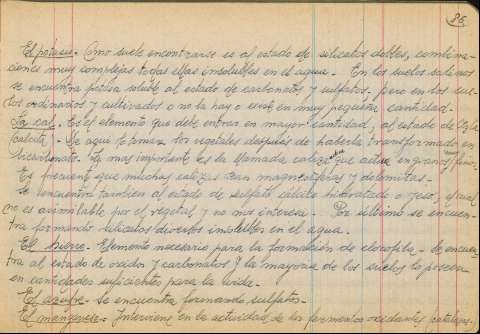 86.
El potasio.- Como suele encontrarse es al estado de silicatos dobles, combina-
ciones muy complejas todas ellas insolubles en el agua.- En los suelos salinos
se encuentra potasa soluble al estado de carbonatos y sulfatos, pero en los sue-
los ordinarios y cultivados o no la hay o existe en muy pequeña cantidad.
La cal.- Es el elemento que debe entrar en mayor cantidad, al estado de
(calcita).- De aquí la toman los vegetales después de haberla transformado en
bicarbonato. La mas importante es la llamada caliza que actúa en grano fino.
Es frecuente que muchas calizas sean magnesianas y dolomitas.-
Se encuentra tambien al estado de sulfato cálcico hidratado o yeso, el cual
no es asimilable por el vegetal y no nos interesa.- Por último se encuen-
tra formando silicatos diversos insolubles en el agua.
El hierro.- Elemento necesario para la formación de clorofila.- Se encuen-
tra al estado de oxidos y carbonatos y la mayoria de los suelos lo poseen
en cantidades suficientes para la vida.-
El azufre.- Se encuentra formando sulfatos.-
El manganeso.- Interviene en la actividad de los fermentos oxidantes